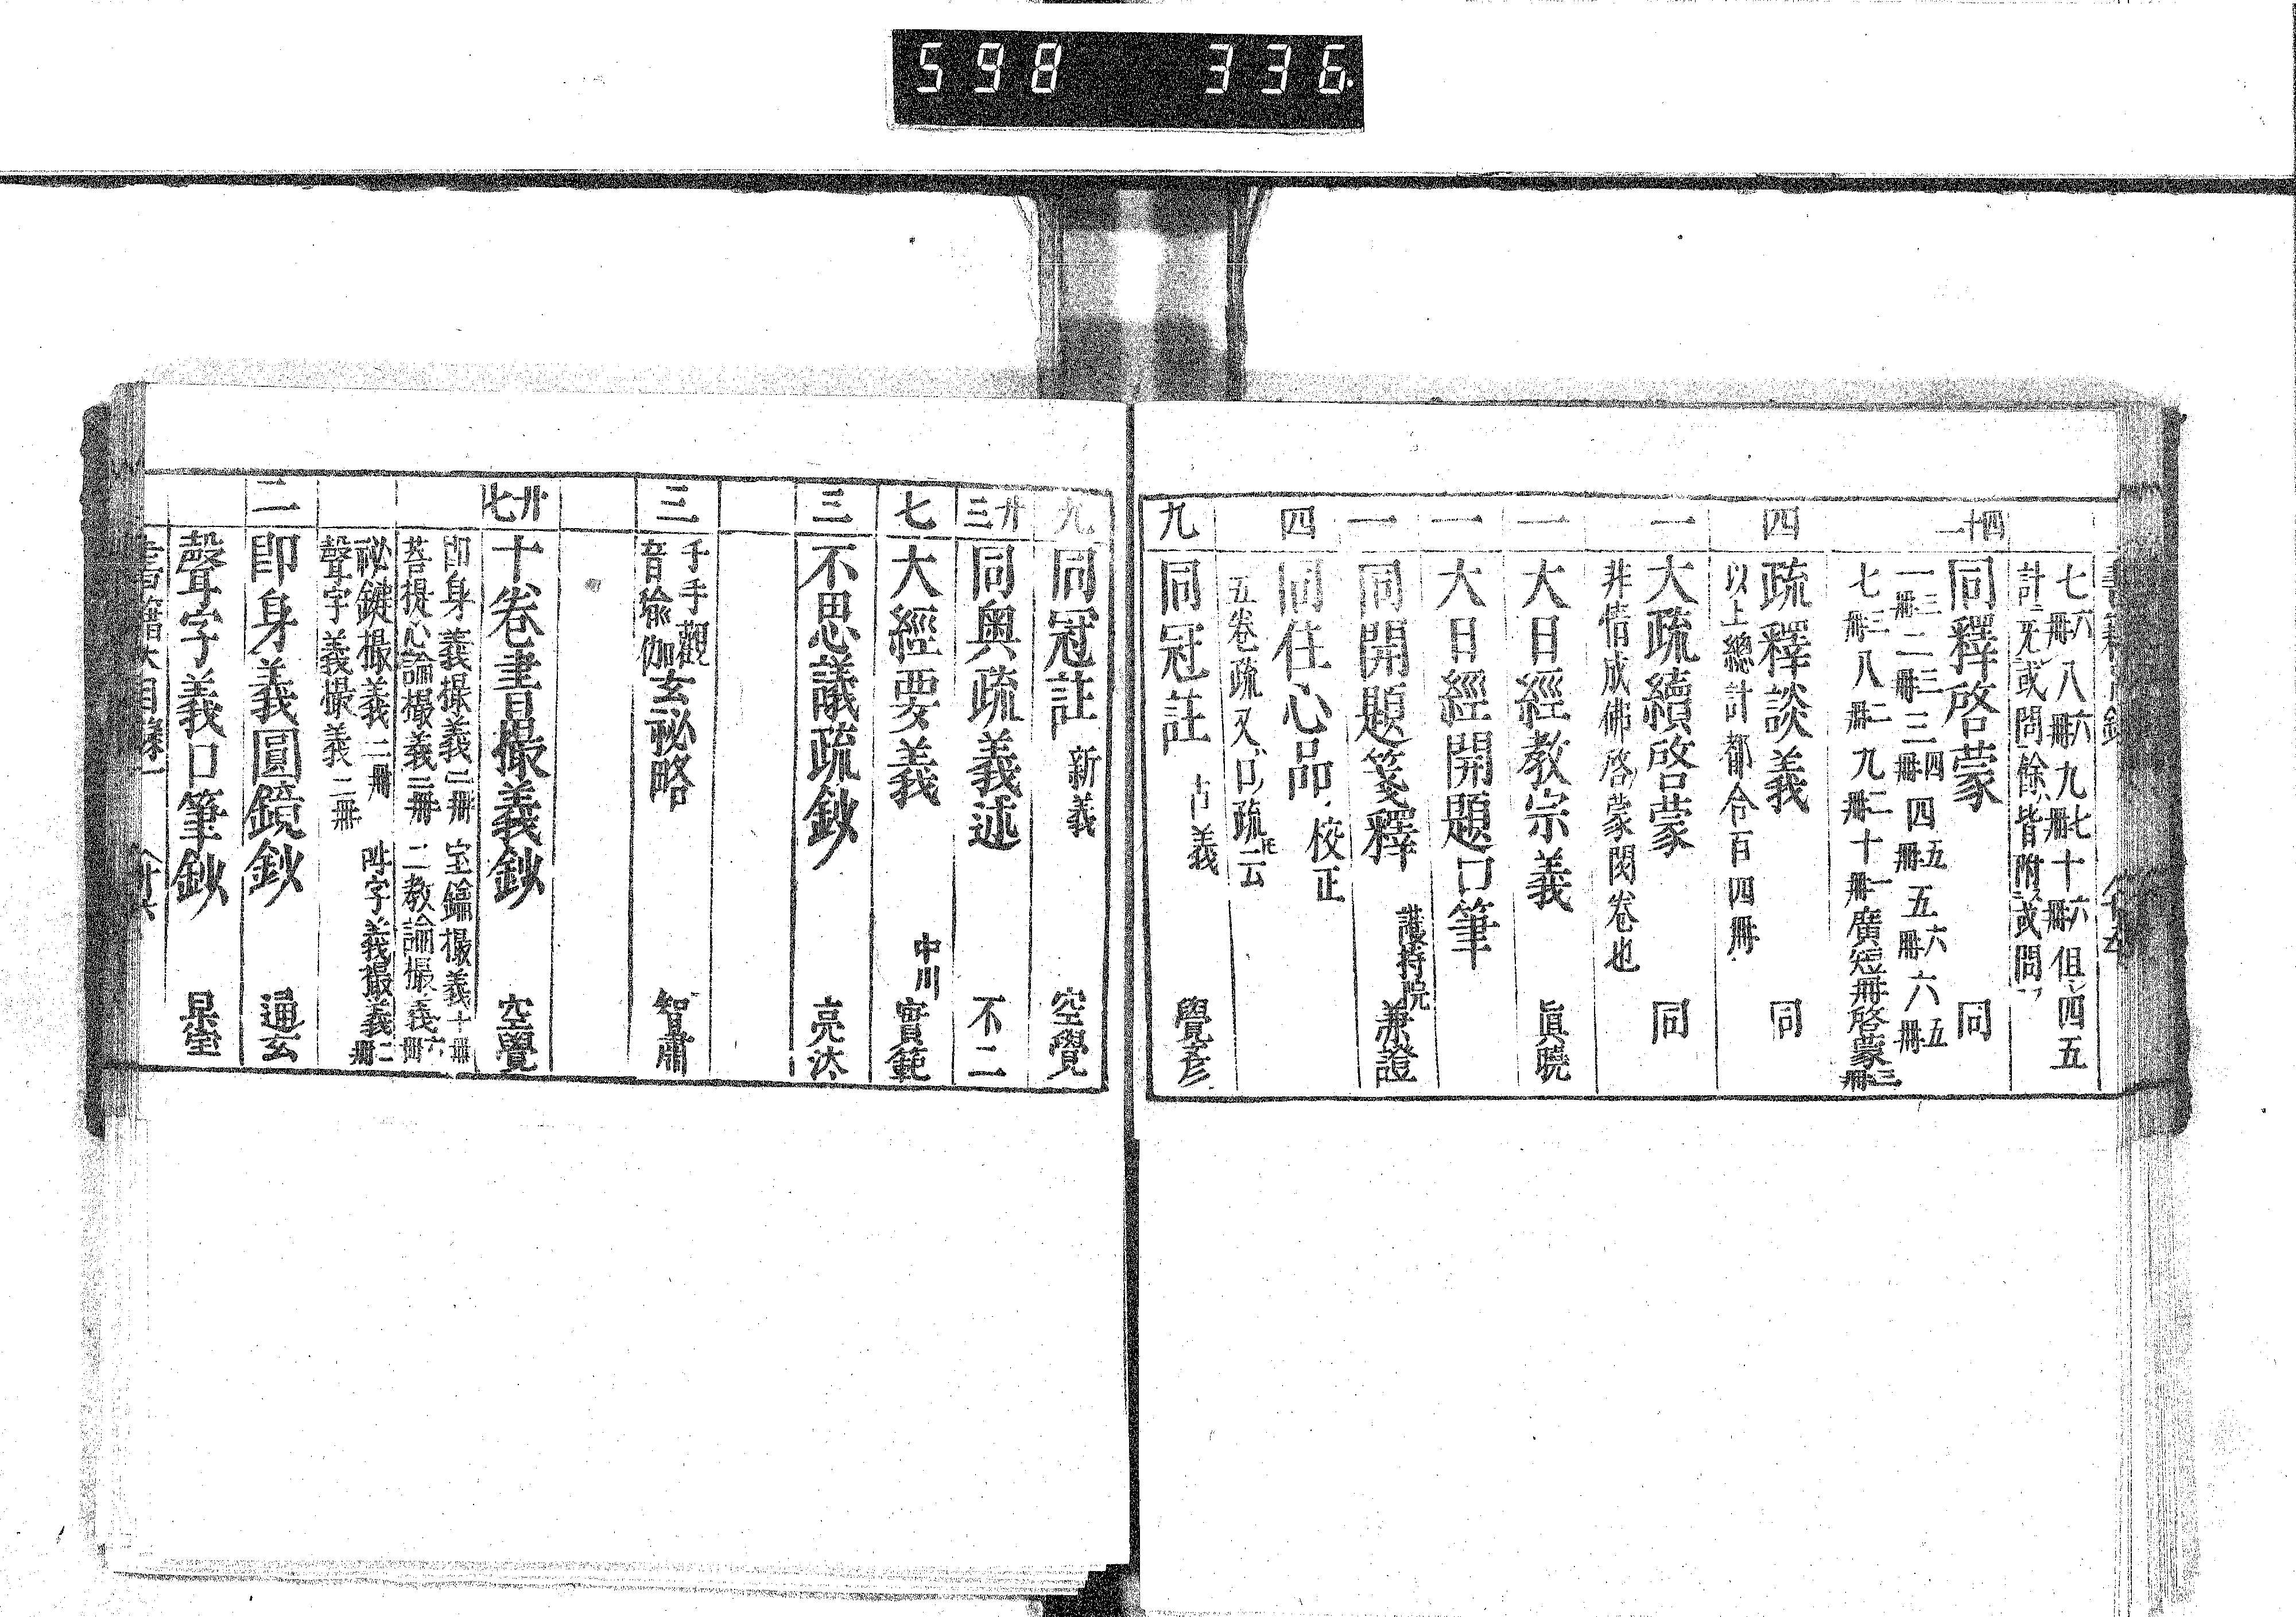 598 336
七六冊八六冊九七冊十六冊但四五
計二冊或問餘皆附或問
四十一 同釋啓蒙 同
一三冊二三冊三四冊四五冊五六冊六五冊
七三冊八二冊九二冊十一冊廣短冊啓蒙三冊
四 疏釋談義 同
以上總計都合百四冊
一 大疏續啓蒙 同
非情成佛啓蒙関卷也
一 大日經教宗義 眞曉
一 大日經開題口筆
一 同開題箋釋 護持院 兼證
四 同住心品 校正
五卷疏又口疏 云
九 同冠註 古義 覺彦
九 同冠註 新義 空覺
廿三 同奥疏義述 不二
七 大經要義 中川 實範
三 不思議疏鈔 亮汰
三 千手觀音瑜伽玄祕略 智肅
廿七 十卷書撮義鈔 空覺
即身義撮義二冊 宝鑰撮義十冊
菩提心論撮義三冊 二教論撮義六冊
祕鍵撮義二冊 吽字義撮義二冊
聲字義撮義二冊
二 即身義圓鏡鈔 通玄
聲字義口筆鈔 杲宝